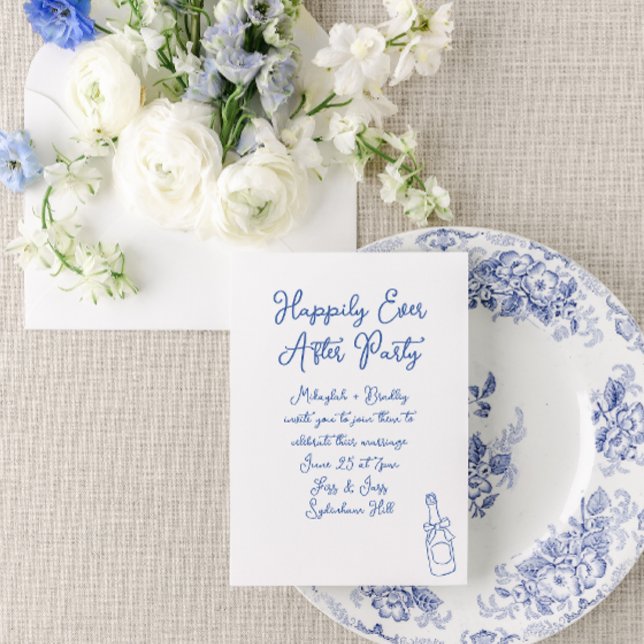 Happily Ever
After Party
Mikaylah + Bradley
invite you to join them to
celebrate their marriage
June 25 at 7pm
Fizz & Jazz
Sydenham Hill